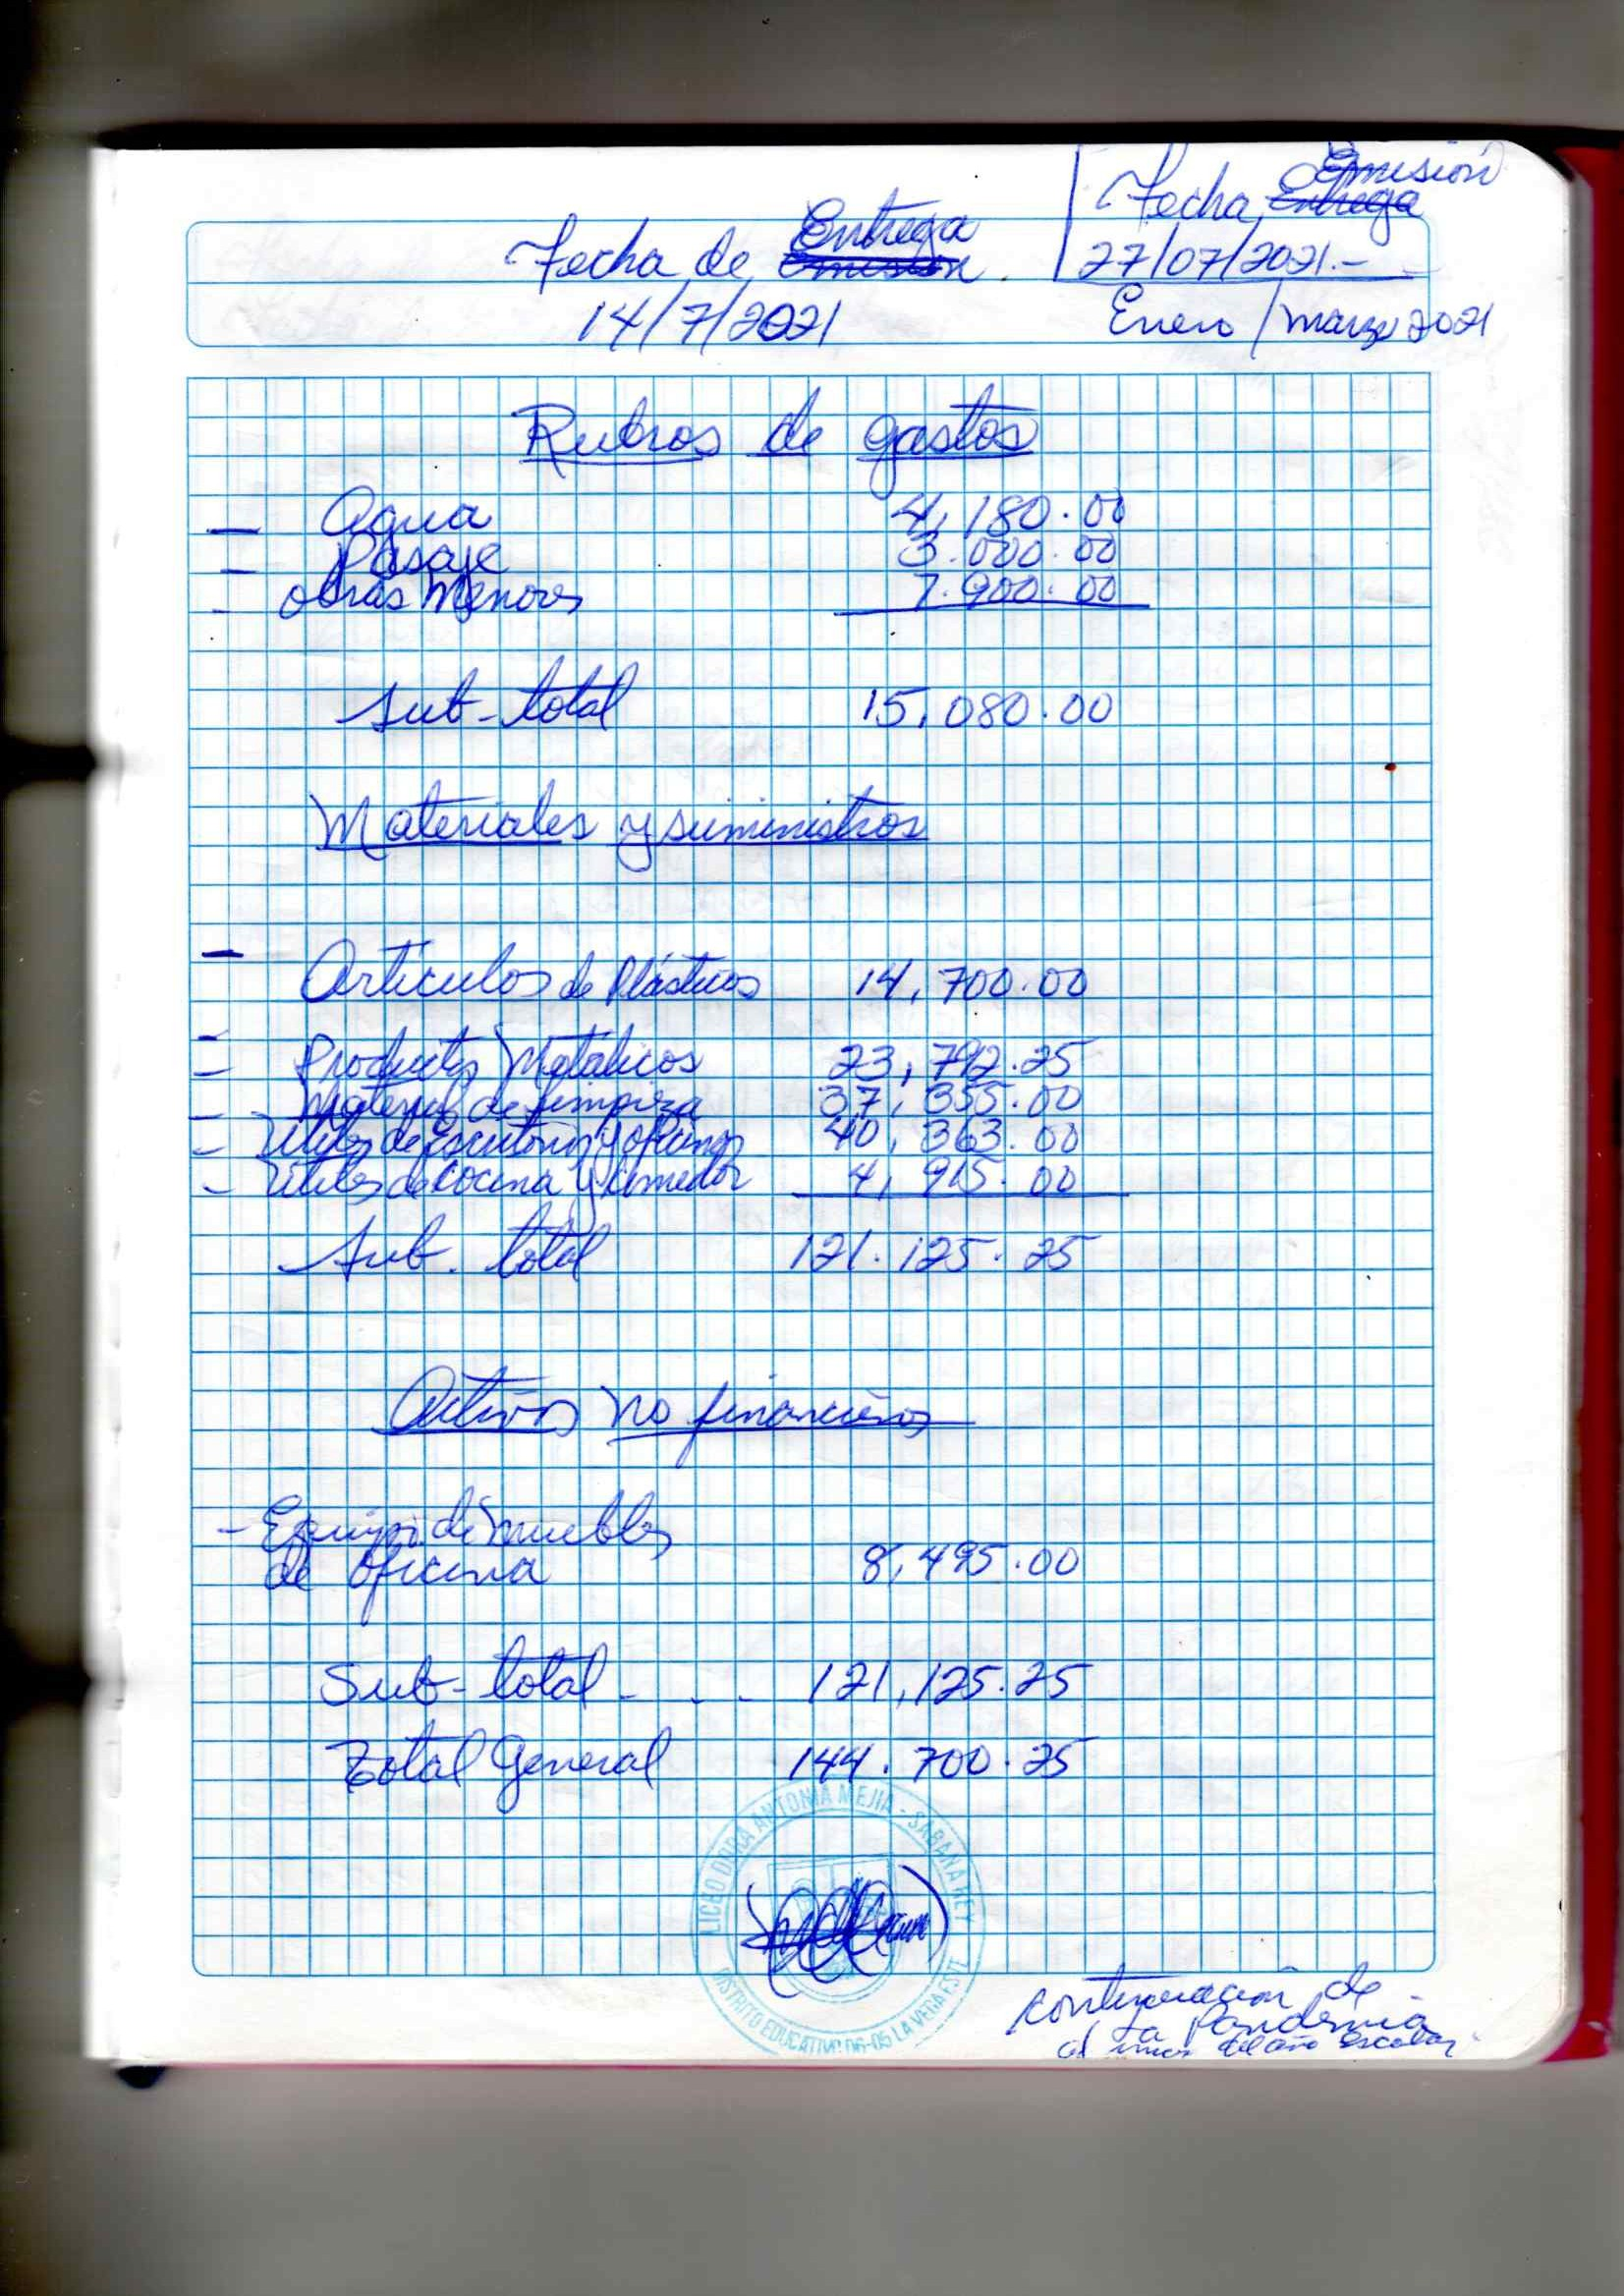 Emisión
Fecha Entrega
27/07/2021.-
Entrega
Fecha de Emisión
14/7/2021
Enero/marzo 2021
Rubros de gastos
— Agua 4,180.00
- Pasaje 3.000.00
- Obras Menores 7.900.00
Sub-total 15,080.00
Materiales y suministros
- Articulos de Plásticos 14,700.00
- Productos Metálicos 23,792.25
- Material de limpieza 37,355.00
- Utiles de Escritorio y oficina 40,363.00
- Utiles de cocina y comedor 4,915.00
Sub. total 121.125.25
Activos no financieros
- Equipo de muebles
de oficina 8,495.00
Sub-total - - - 121,125.25
Total General 144.700.25
LICEO DORA ANTONIA MEJIA - SABANA REY
DISTRITO EDUCATIVO 06-05 LA VEGA ESTE
continuación de
la Pandemia
del año escolar